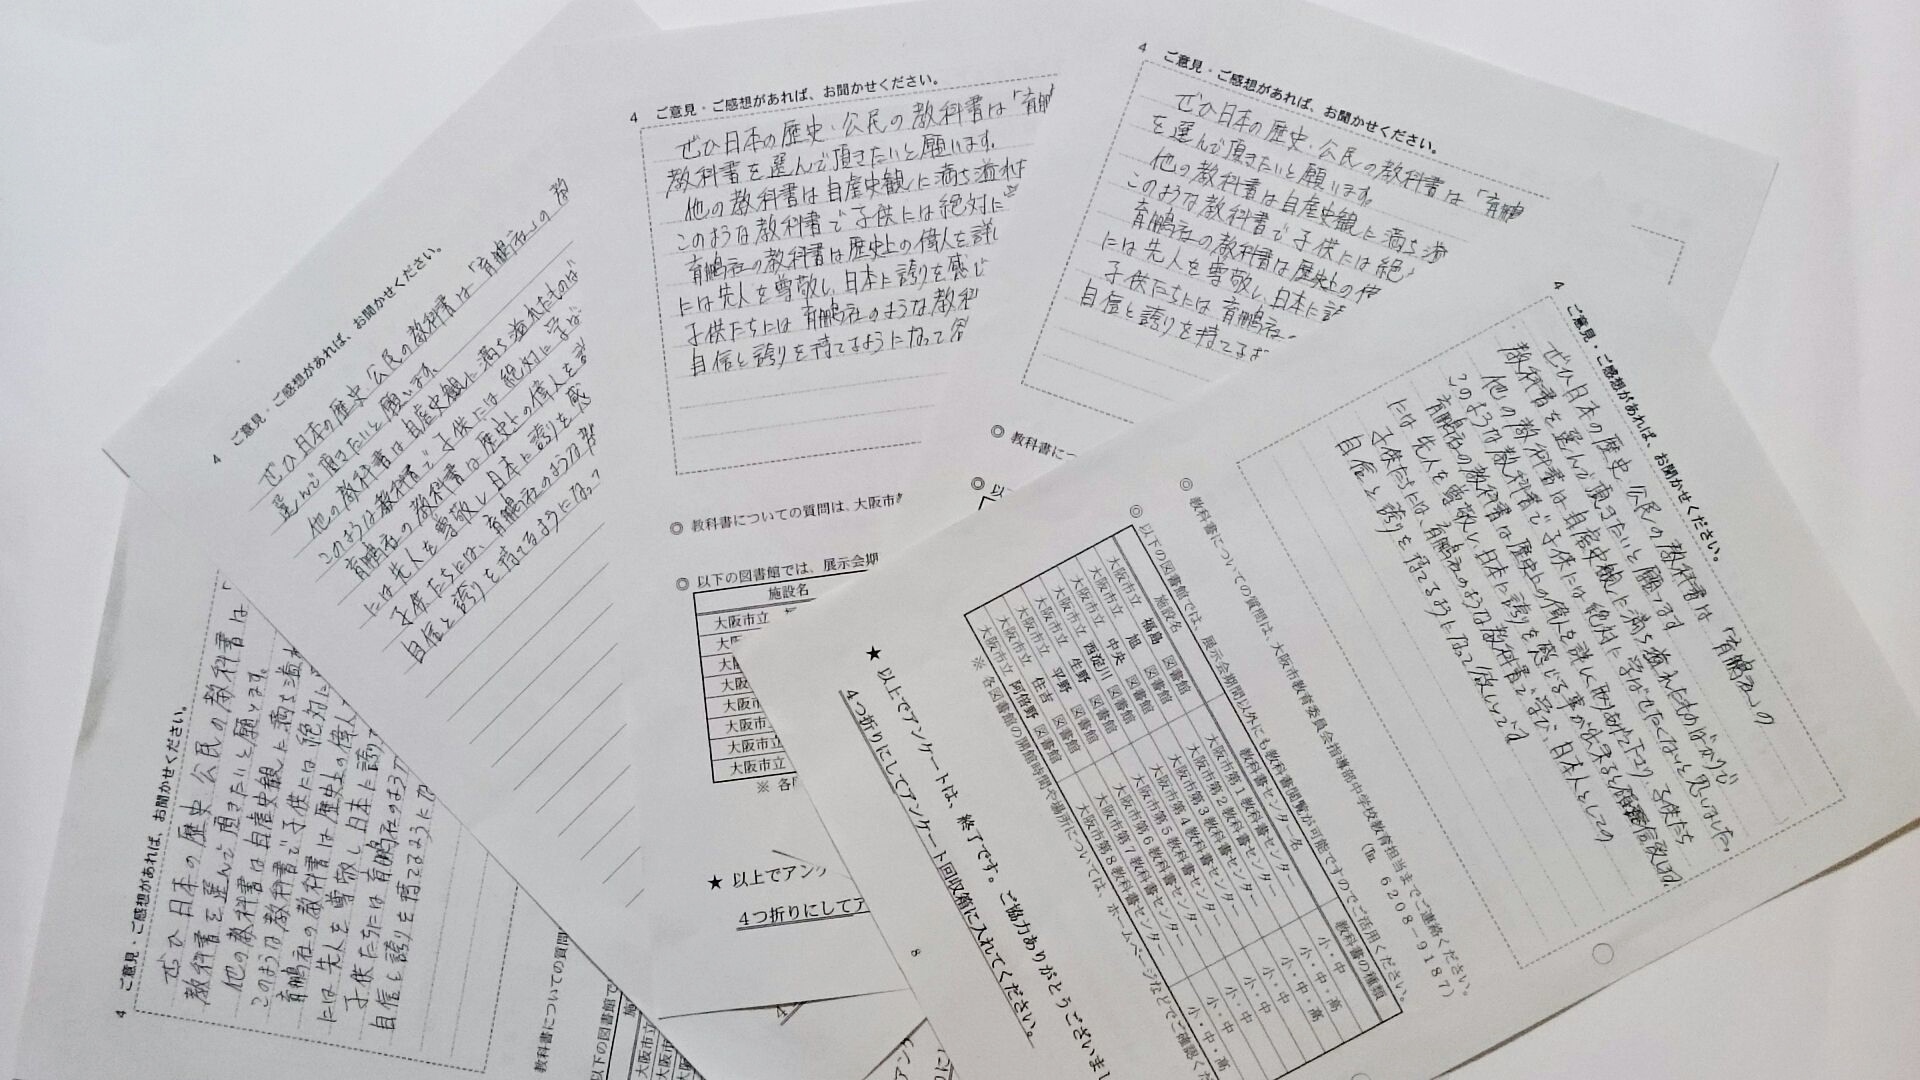 4 ご意見・ご感想があれば、お聞かせください。
ぜひ日本の歴史・公民の教科書は「育鵬
教科書を選んで頂きたいと願います。
他の教科書は自虐史観に満ち溢れた
このような教科書で子供には絶対に
育鵬社の教科書は歴史上の偉人を詳し
には先人を尊敬し、日本に誇りを感じ
子供たちには育鵬社のような教科
自信と誇りを持てるようになって
◎ 教科書についての質問は、大阪市
◎ 以下の図書館では、展示会期
施設名
大阪市立
大阪
大阪
大阪
大阪市
大阪市
大阪市立
大阪市立
※ 各
★ 以上でアンケ
4つ折りにしてア
4 ご意見・ご感想があれば、お聞かせください。
ぜひ日本の歴史・公民の教科書は「育鵬
を選んで頂きたいと願います。
他の教科書は自虐史観に満ち溢
このような教科書で子供には絶
育鵬社の教科書は歴史上の偉
には先人を尊敬し、日本に誇
子供たちには育鵬社
自信と誇りを持てるよ
◎ 教科書に
◎ 以
4 ご意見・ご感想があれば、お聞かせください。
ぜひ日本の歴史・公民の教科書は「育鵬社」の教
選んで頂きたいと願います。
他の教科書は自虐史観に満ち溢れたものば
このような教科書で子供には絶対に学ば
育鵬社の教科書は歴史上の偉人を詳
には先人を尊敬し日本に誇りを感
子供たちには、育鵬社のような教
自信と誇りを持てるようになっ
4 ご意見・ご感想があれば、お聞かせください。
ぜひ日本の歴史・公民の教科書は「
教科書を選んで頂きたいと願います。
他の教科書は自虐史観に満ち溢れ
このような教科書で子供には絶対に
育鵬社の教科書は歴史上の偉人
には先人を尊敬し日本に誇り
子供たちには育鵬社のような
自信と誇りを持てるように
教科書についての質問
以下の図書館で
施
大阪市立
大阪市立
大阪市
4 ご意見・ご感想があれば、お聞かせください。
ぜひ日本の歴史、公民の教科書は「育鵬社」の
教科書を選んで頂きたいと願います
他の教科書は自虐史観に満ち溢れたものばかりで
このような教科書で子供には絶対に学ばせたくないと思いました。
育鵬社の教科書は歴史上の偉人を詳しく 子供たち
には先人を尊敬し、日本に誇りを感じる事が出来ると
子供たちには、育鵬社のような教科書で学び、日本人としての
自信と誇りを持てるようになって欲しいです
◎ 教科書についての質問は、大阪市教育委員会指導部中学校教育担当までご連絡ください。
(℡ 6208-9187)
◎ 以下の図書館では、展示会期間以外にも教科書閲覧が可能ですのでご活用ください。
施設名 教科書センター名 教科書の種類
大阪市立 福島 図書館 大阪市第1教科書センター 小・中・高
大阪市立 旭 図書館 大阪市第2教科書センター 小・中・高
大阪市立 中央 図書館 大阪市第3教科書センター 小・中・高
大阪市立 西淀川 図書館 大阪市第4教科書センター 小・中
大阪市立 生野 図書館 大阪市第5教科書センター 小・中
大阪市立 平野 図書館 大阪市第6教科書センター 小・中
大阪市立 住吉 図書館 大阪市第7教科書センター 小・中
大阪市立 阿倍野 図書館 大阪市第8教科書センター 小・中・高
※ 各図書館の開館時間や場所については、ホームページなどでご確認くだ
★ 以上でアンケートは、終了です。ご協力ありがとうございまし
4つ折りにしてアンケート回収箱に入れてください。
8